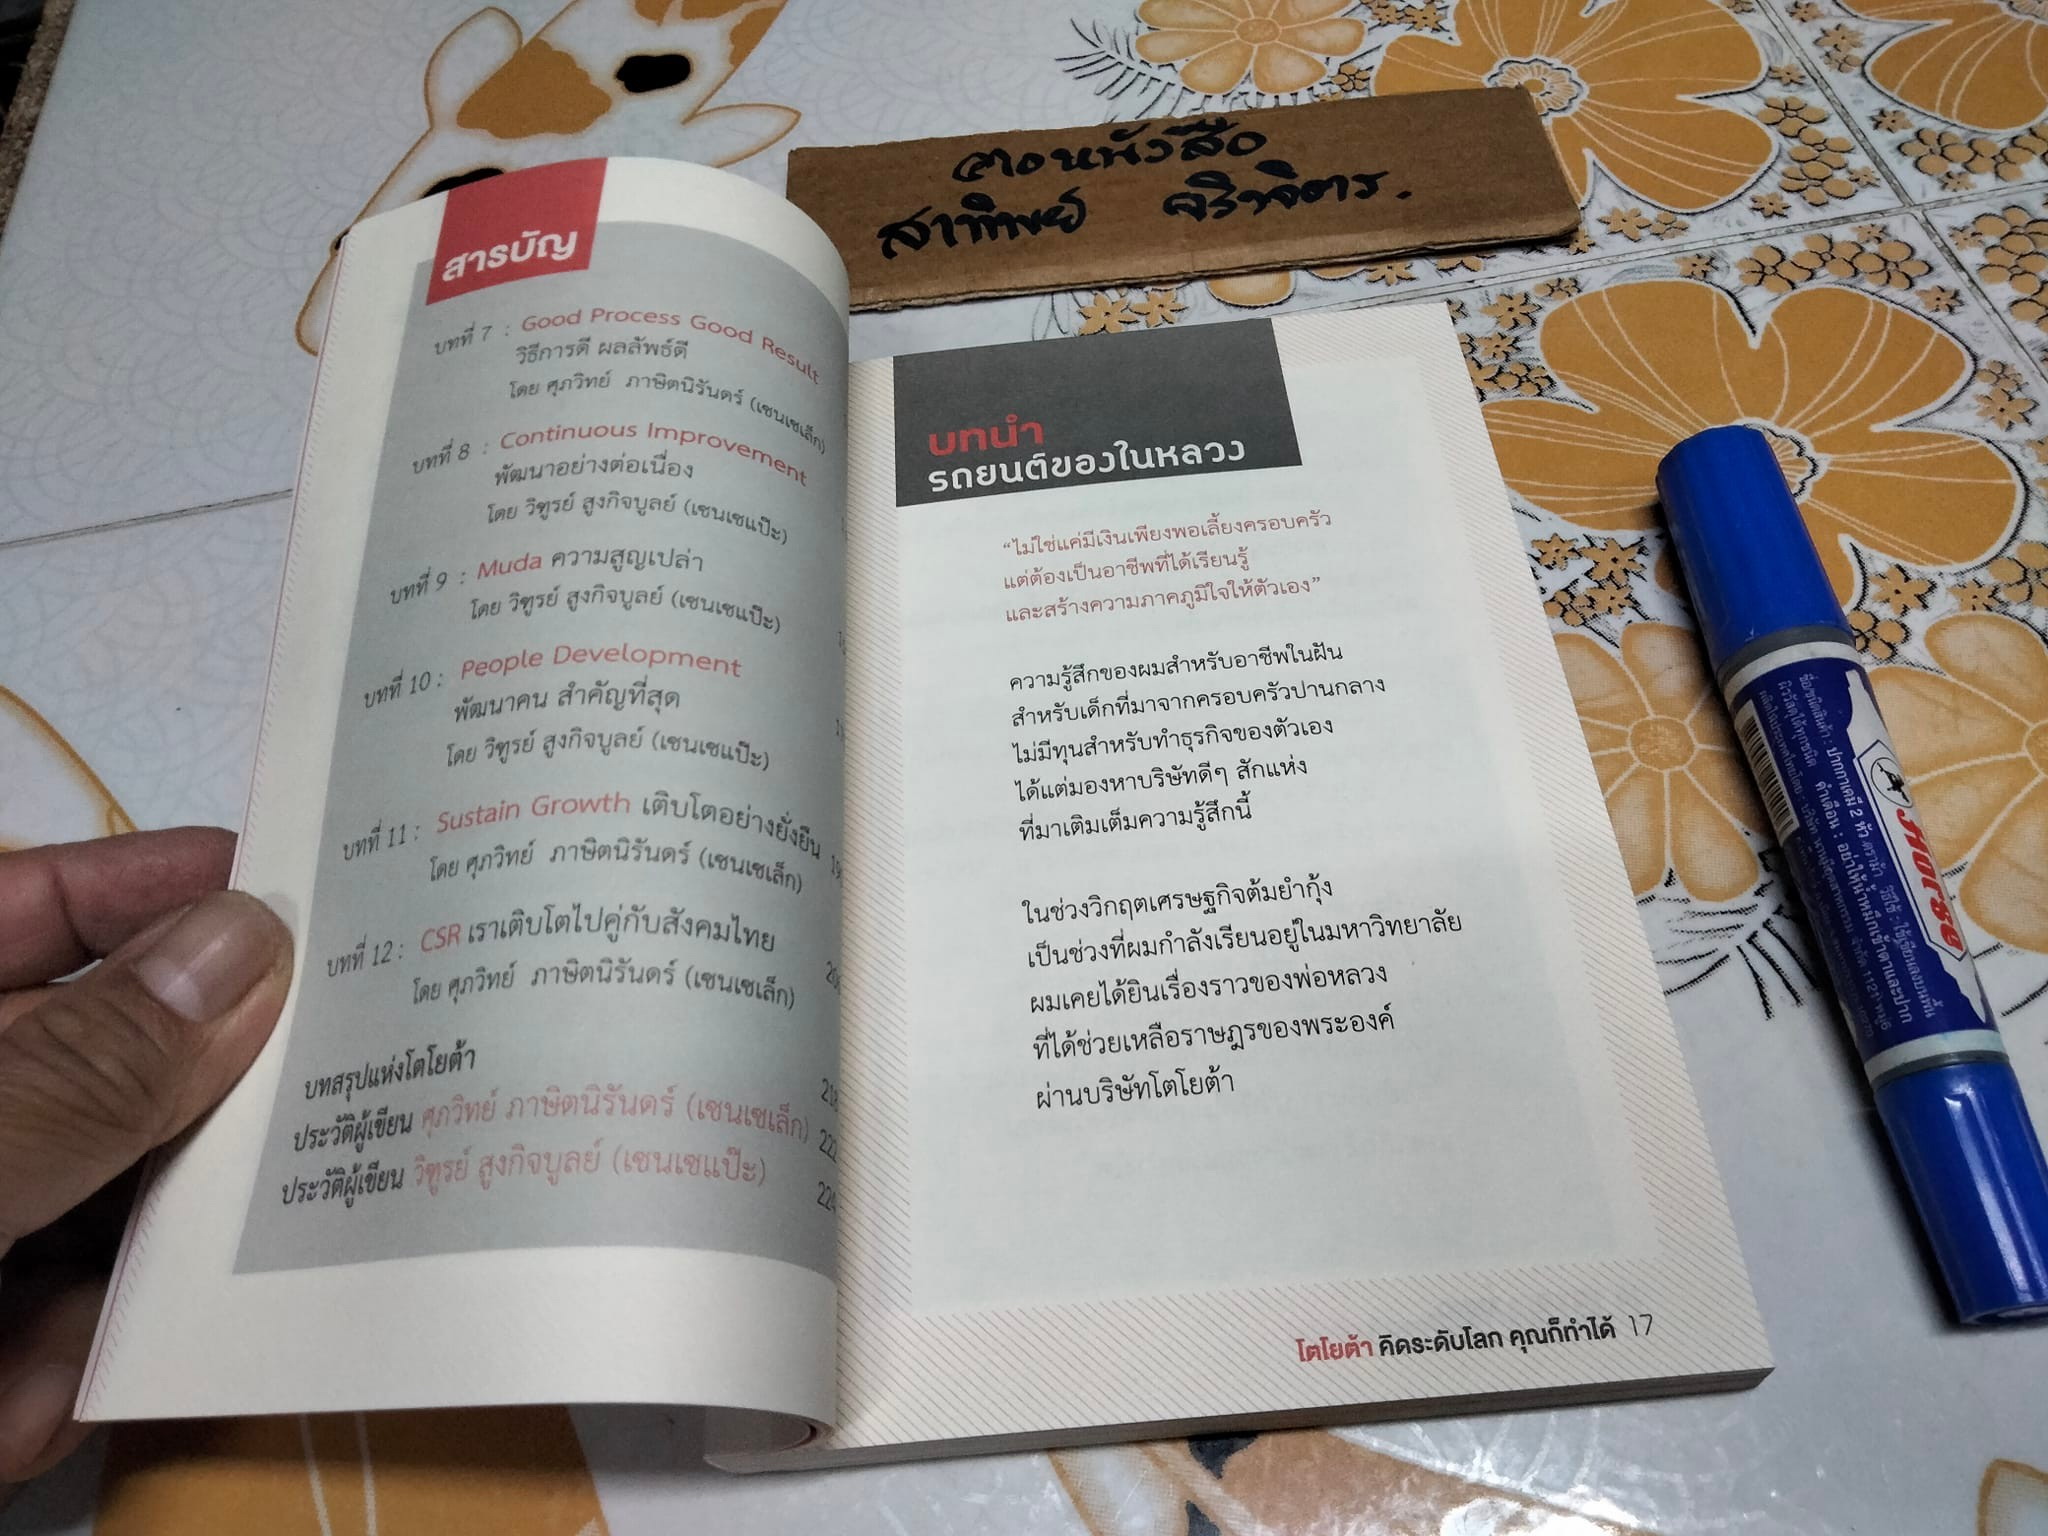 ตอหนังสือ
สาทิพย์ จริาจิตร.
สารบัญ
บทที่ 7 : Good Process Good Result
วิธีการดี ผลลัพธ์ดี
โดย ศุภวิทย์ ภาษิตนิรันดร์ (เซนเซเล็ก)
บทที่ 8 : Continuous Improvement
พัฒนาอย่างต่อเนื่อง
โดย วิฑูรย์ สูงกิจบูลย์ (เซนเซแป๊ะ)
บทที่ 9 : Muda ความสูญเปล่า
โดย วิฑูรย์ สูงกิจบูลย์ (เซนเซแป๊ะ)
บทที่ 10 : People Development
พัฒนาคน สำคัญที่สุด
โดย วิฑูรย์ สูงกิจบูลย์ (เซนเซแป๊ะ)
บทที่ 11 : Sustain Growth เติบโตอย่างยั่งยืน
โดย ศุภวิทย์ ภาษิตนิรันดร์ (เซนเซเล็ก)
บทที่ 12 : CSR เราเติบโตไปคู่กับสังคมไทย
โดย ศุภวิทย์ ภาษิตนิรันดร์ (เซนเซเล็ก)
บทสรุปแห่งโตโยต้า
ประวัติผู้เขียน ศุภวิทย์ ภาษิตนิรันดร์ (เซนเซเล็ก) 222
ประวัติผู้เขียน วิฑูรย์ สูงกิจบูลย์ (เซนเซแป๊ะ) 224
บทนำ
รถยนต์ของในหลวง
“ไม่ใช่แค่มีเงินเพียงพอเลี้ยงครอบครัว
แต่ต้องเป็นอาชีพที่ได้เรียนรู้
และสร้างความภาคภูมิใจให้ตัวเอง”
ความรู้สึกของผมสำหรับอาชีพในฝัน
สำหรับเด็กที่มาจากครอบครัวปานกลาง
ไม่มีทุนสำหรับทำธุรกิจของตัวเอง
ได้แต่มองหาบริษัทดีๆ สักแห่ง
ที่มาเติมเต็มความรู้สึกนี้
ในช่วงวิกฤตเศรษฐกิจต้มยำกุ้ง
เป็นช่วงที่ผมกำลังเรียนอยู่ในมหาวิทยาลัย
ผมเคยได้ยินเรื่องราวของพ่อหลวง
ที่ได้ช่วยเหลือราษฎรของพระองค์
ผ่านบริษัทโตโยต้า
โตโยต้า คิดระดับโลก คุณก็ทำได้ 17
Horse
ชื่อ/ชนิดสินค้า : ปากกาเคมี 2 หัว ตราม้า
คำเตือน : อย่าให้น้ำหมึกเข้าตาและปาก